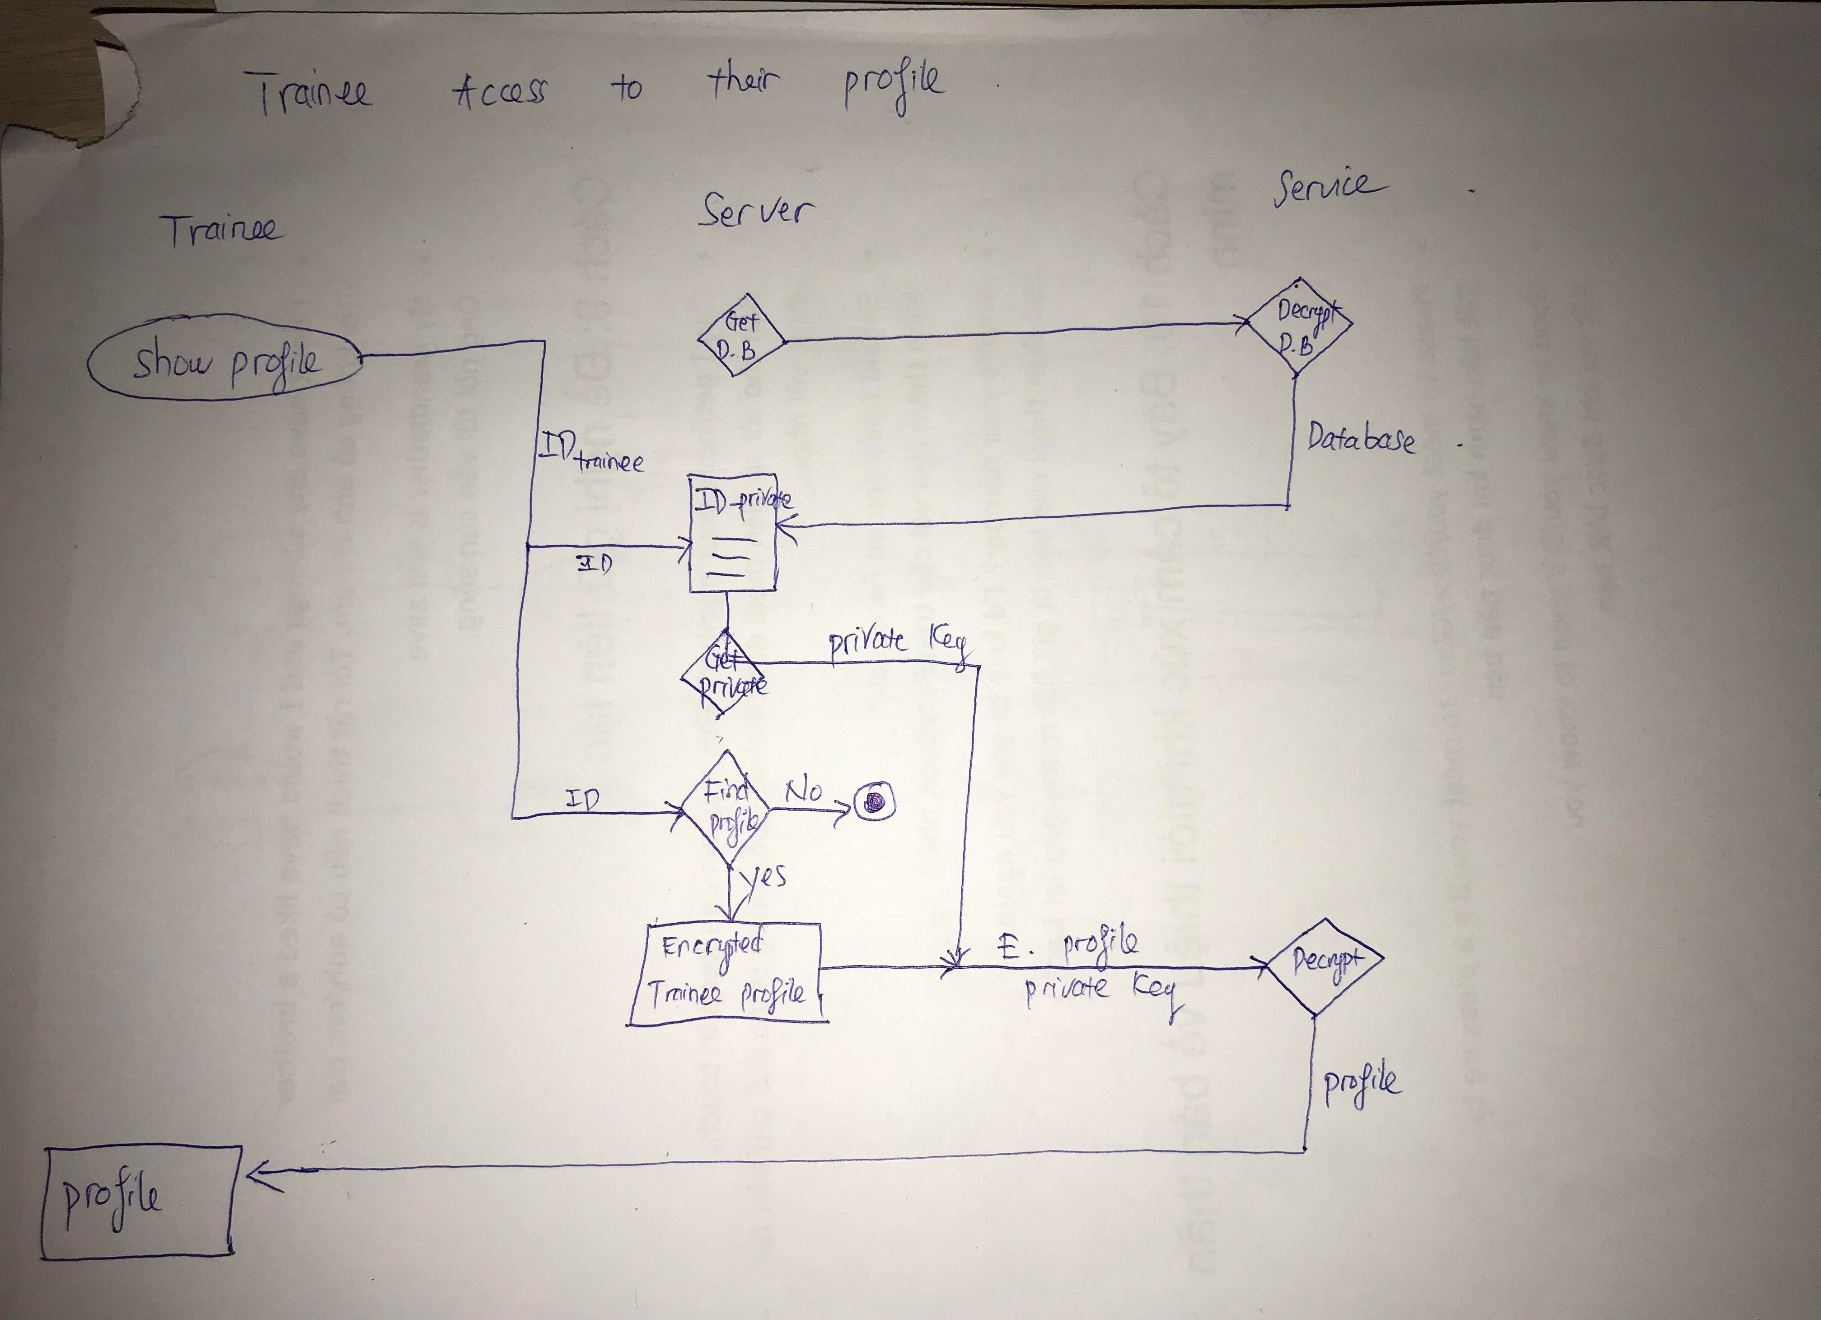 Trainee Access to their profile
Trainee
Server
Service
show profile
Get
D.B
Decrypt
D.B
Database
ID trainee
ID-private
ID
Get
private
private Key
ID
Find
profile
No
yes
Encrypted
Trainee profile
E. profile
private Key
Decrypt
profile
profile